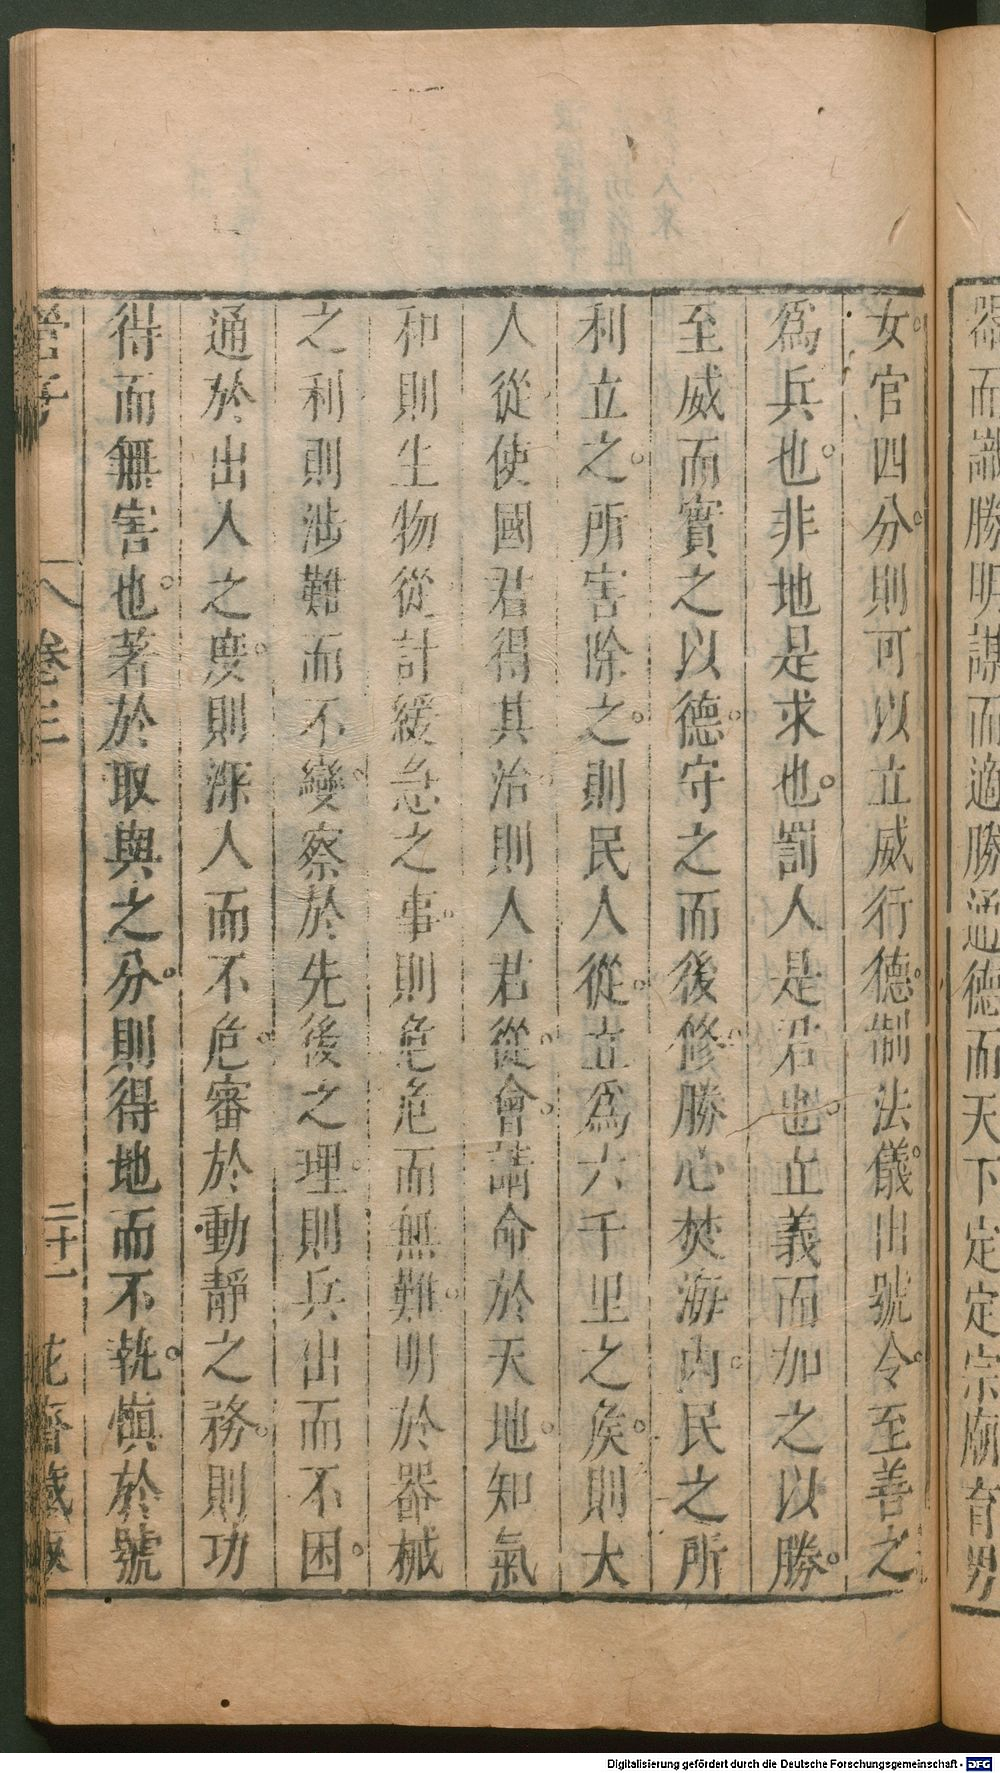 器而識勝明謀而適勝通德而天下定定宗廟育男
女官四分則可以立威行德制法儀出號令至善之
爲兵也非地是求也罰人是君也立義而加之以勝
至威而實之以德守之而後修勝心焚海內民之所
利立之所害除之則民人從立爲六千里之侯則大
人從使國君得其治則人君從會請命於天地知氣
和則生物從計緩急之事則危危而無難明於器械
之利則涉難而不變察於先後之理則兵出而不困
通於出入之度則深入而不危審於動靜之務則功
得而無害也著於取與之分則得地而不執慎於號
管子 卷三 二十一 花齋藏板
Digitalisierung gefördert durch die Deutsche Forschungsgemeinschaft - DFG